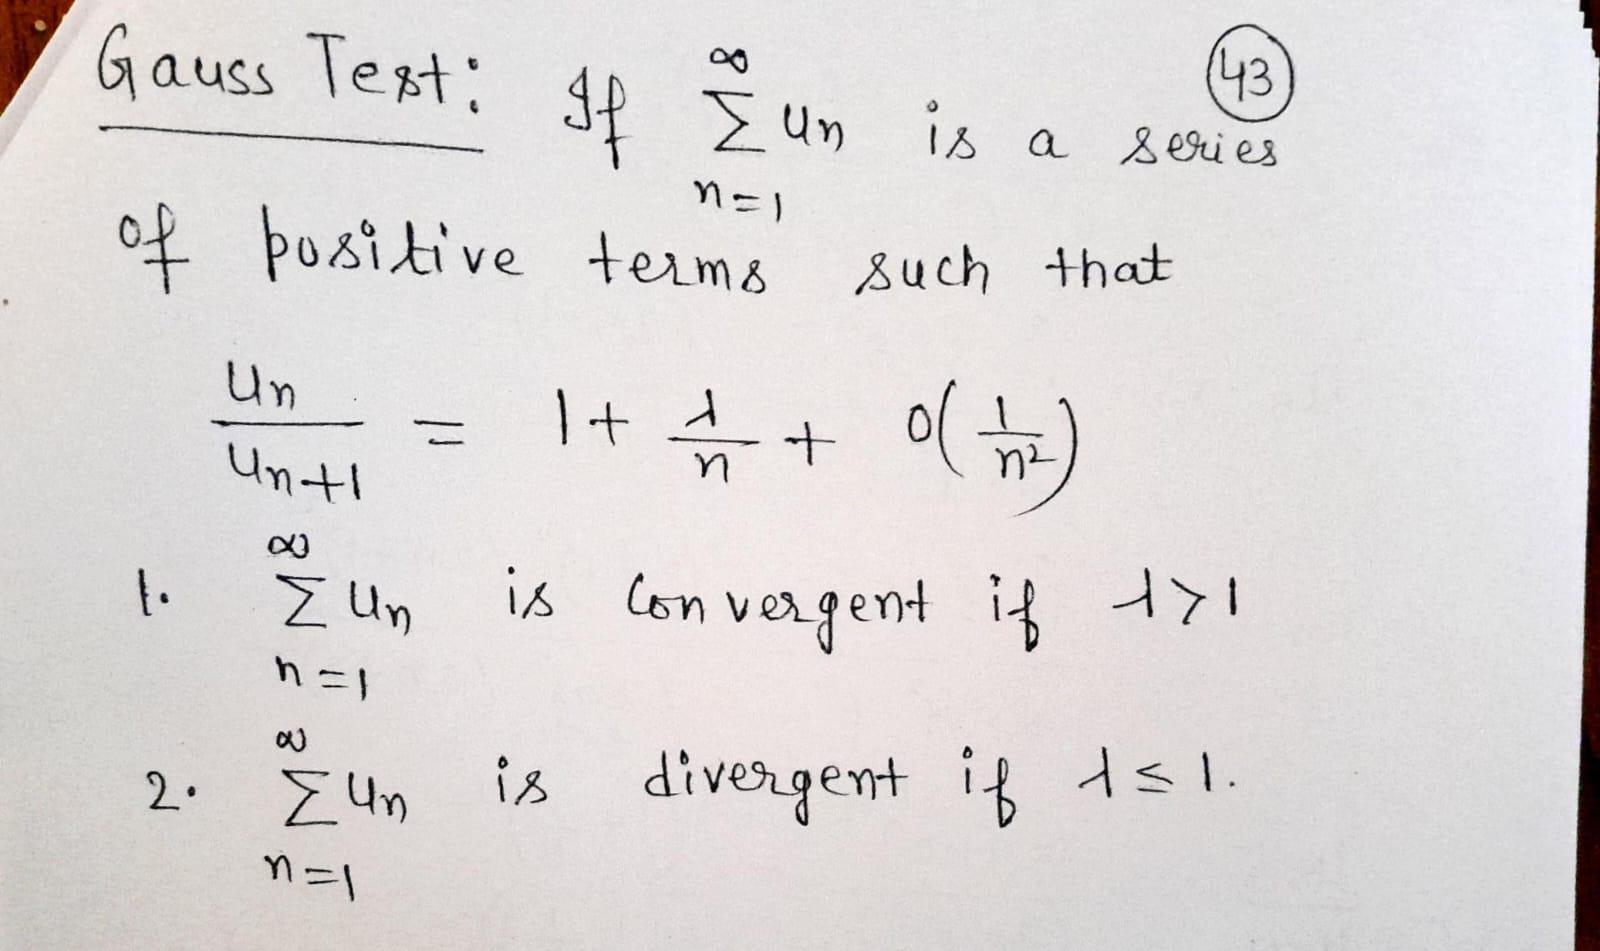 Gauss Test: If ∞∑n=1 un is a series (43)
of positive terms such that
un/un+1 = 1 + λ/n + O(1/n²)
1. ∞∑n=1 un is convergent if λ>1
2. ∞∑n=1 un is divergent if λ≤1.